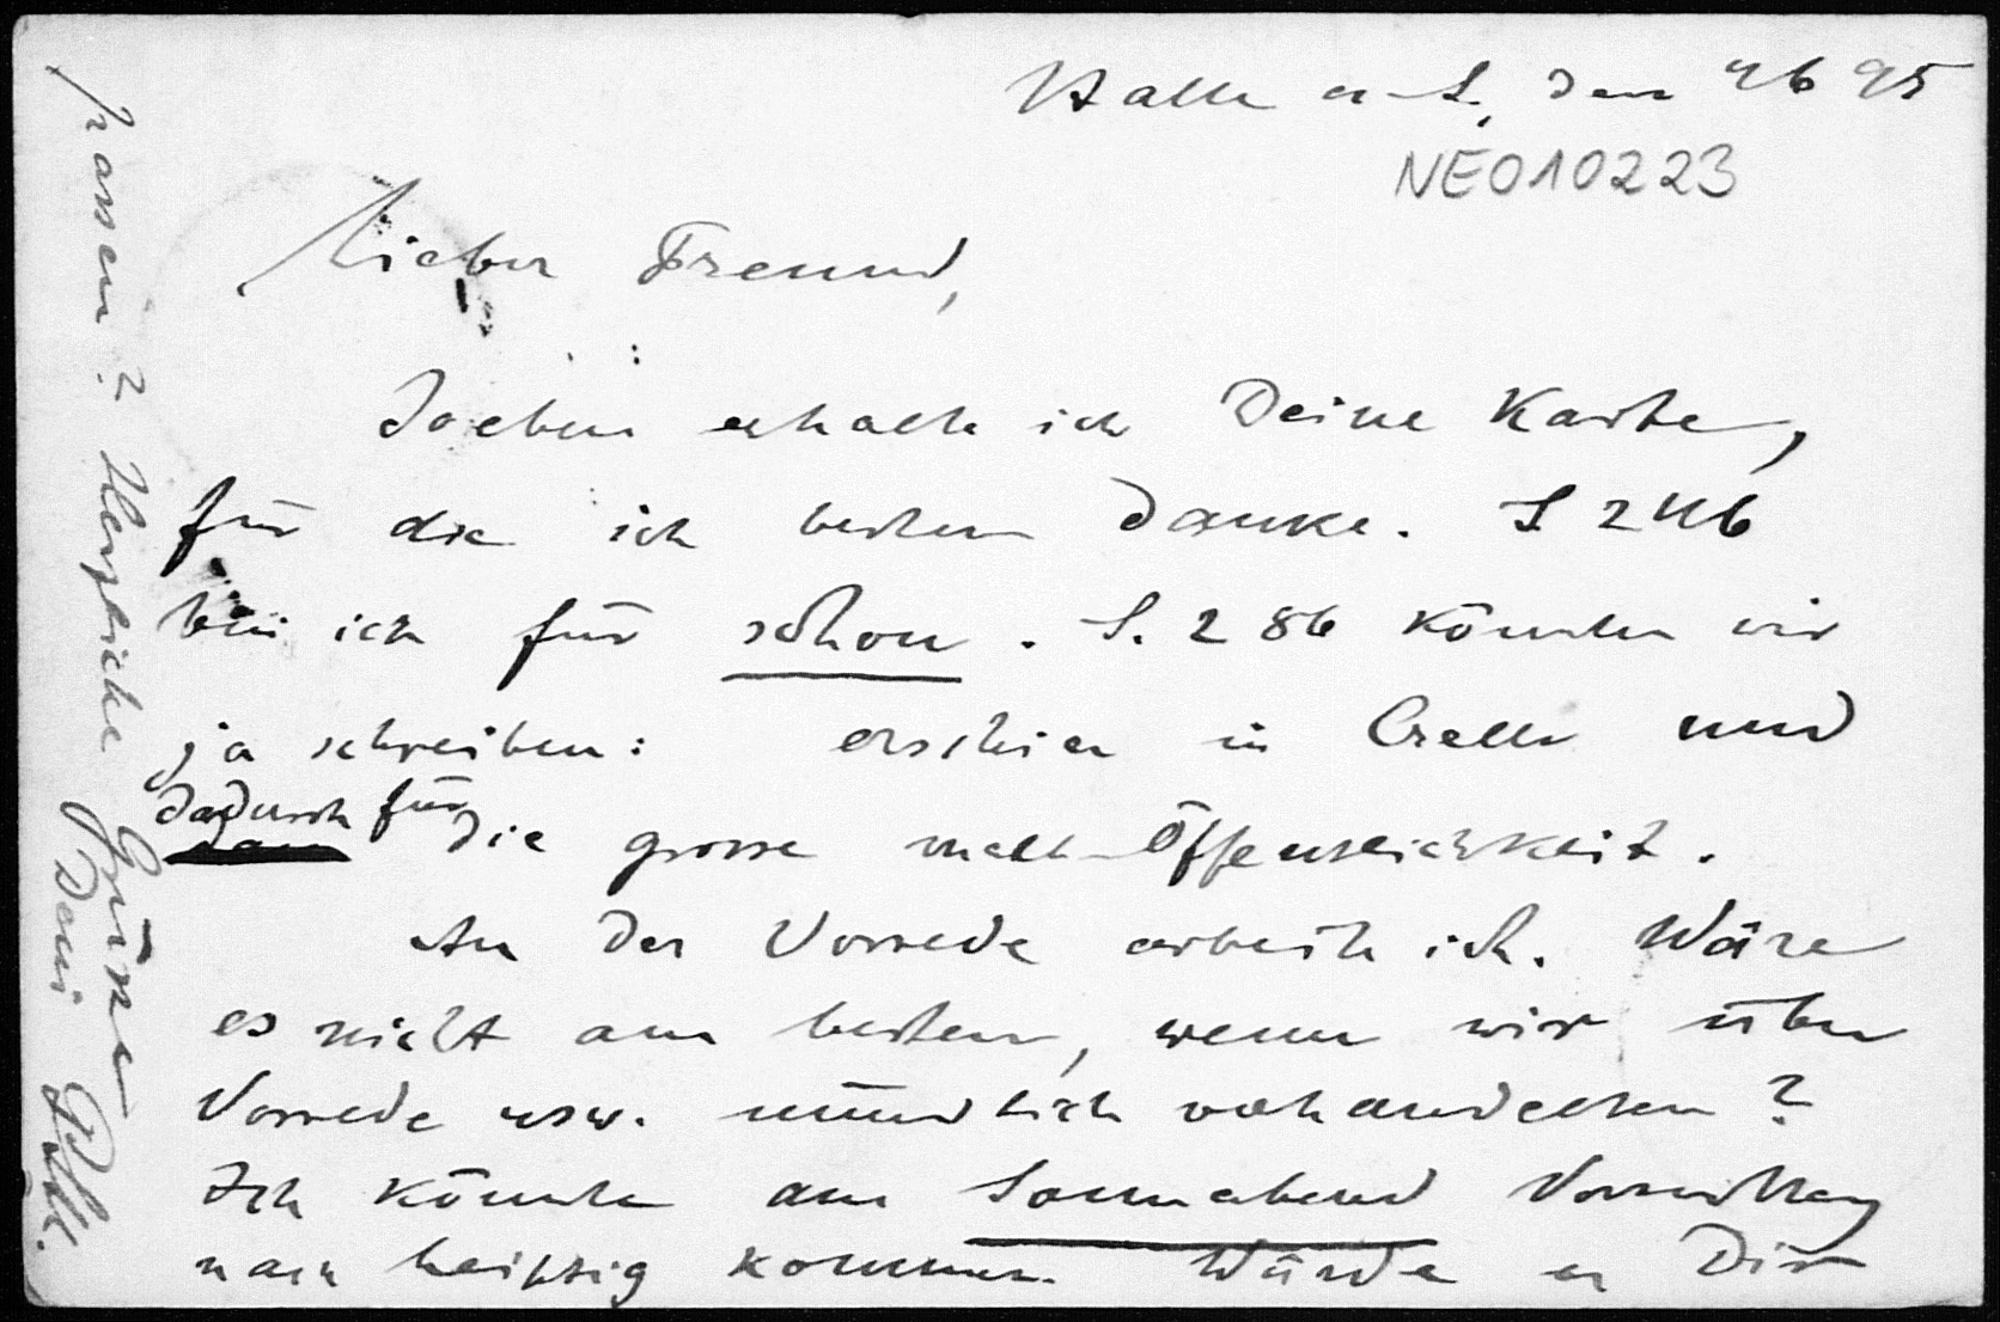 Halle a. S., den 4 6 95
NE010223
Lieber Freund,
Soeben erhalte ich Deine Karte,
für die ich bestens danke. S 246
bin ich für schon. S. 286 könnten wir
ja schreiben: erschien in Crelle und
dadurch für
die grosse math Öffentlichkeit.
An der Vorrede arbeite ich. Wäre
es nicht am besten, wenn wir über
Vorrede usw. mündlich verhandelten?
Ich könnte am Sonnabend Vormittag
nach Leipzig kommen. Würde es Dir
passen? Herzliche Grüsse
Dein